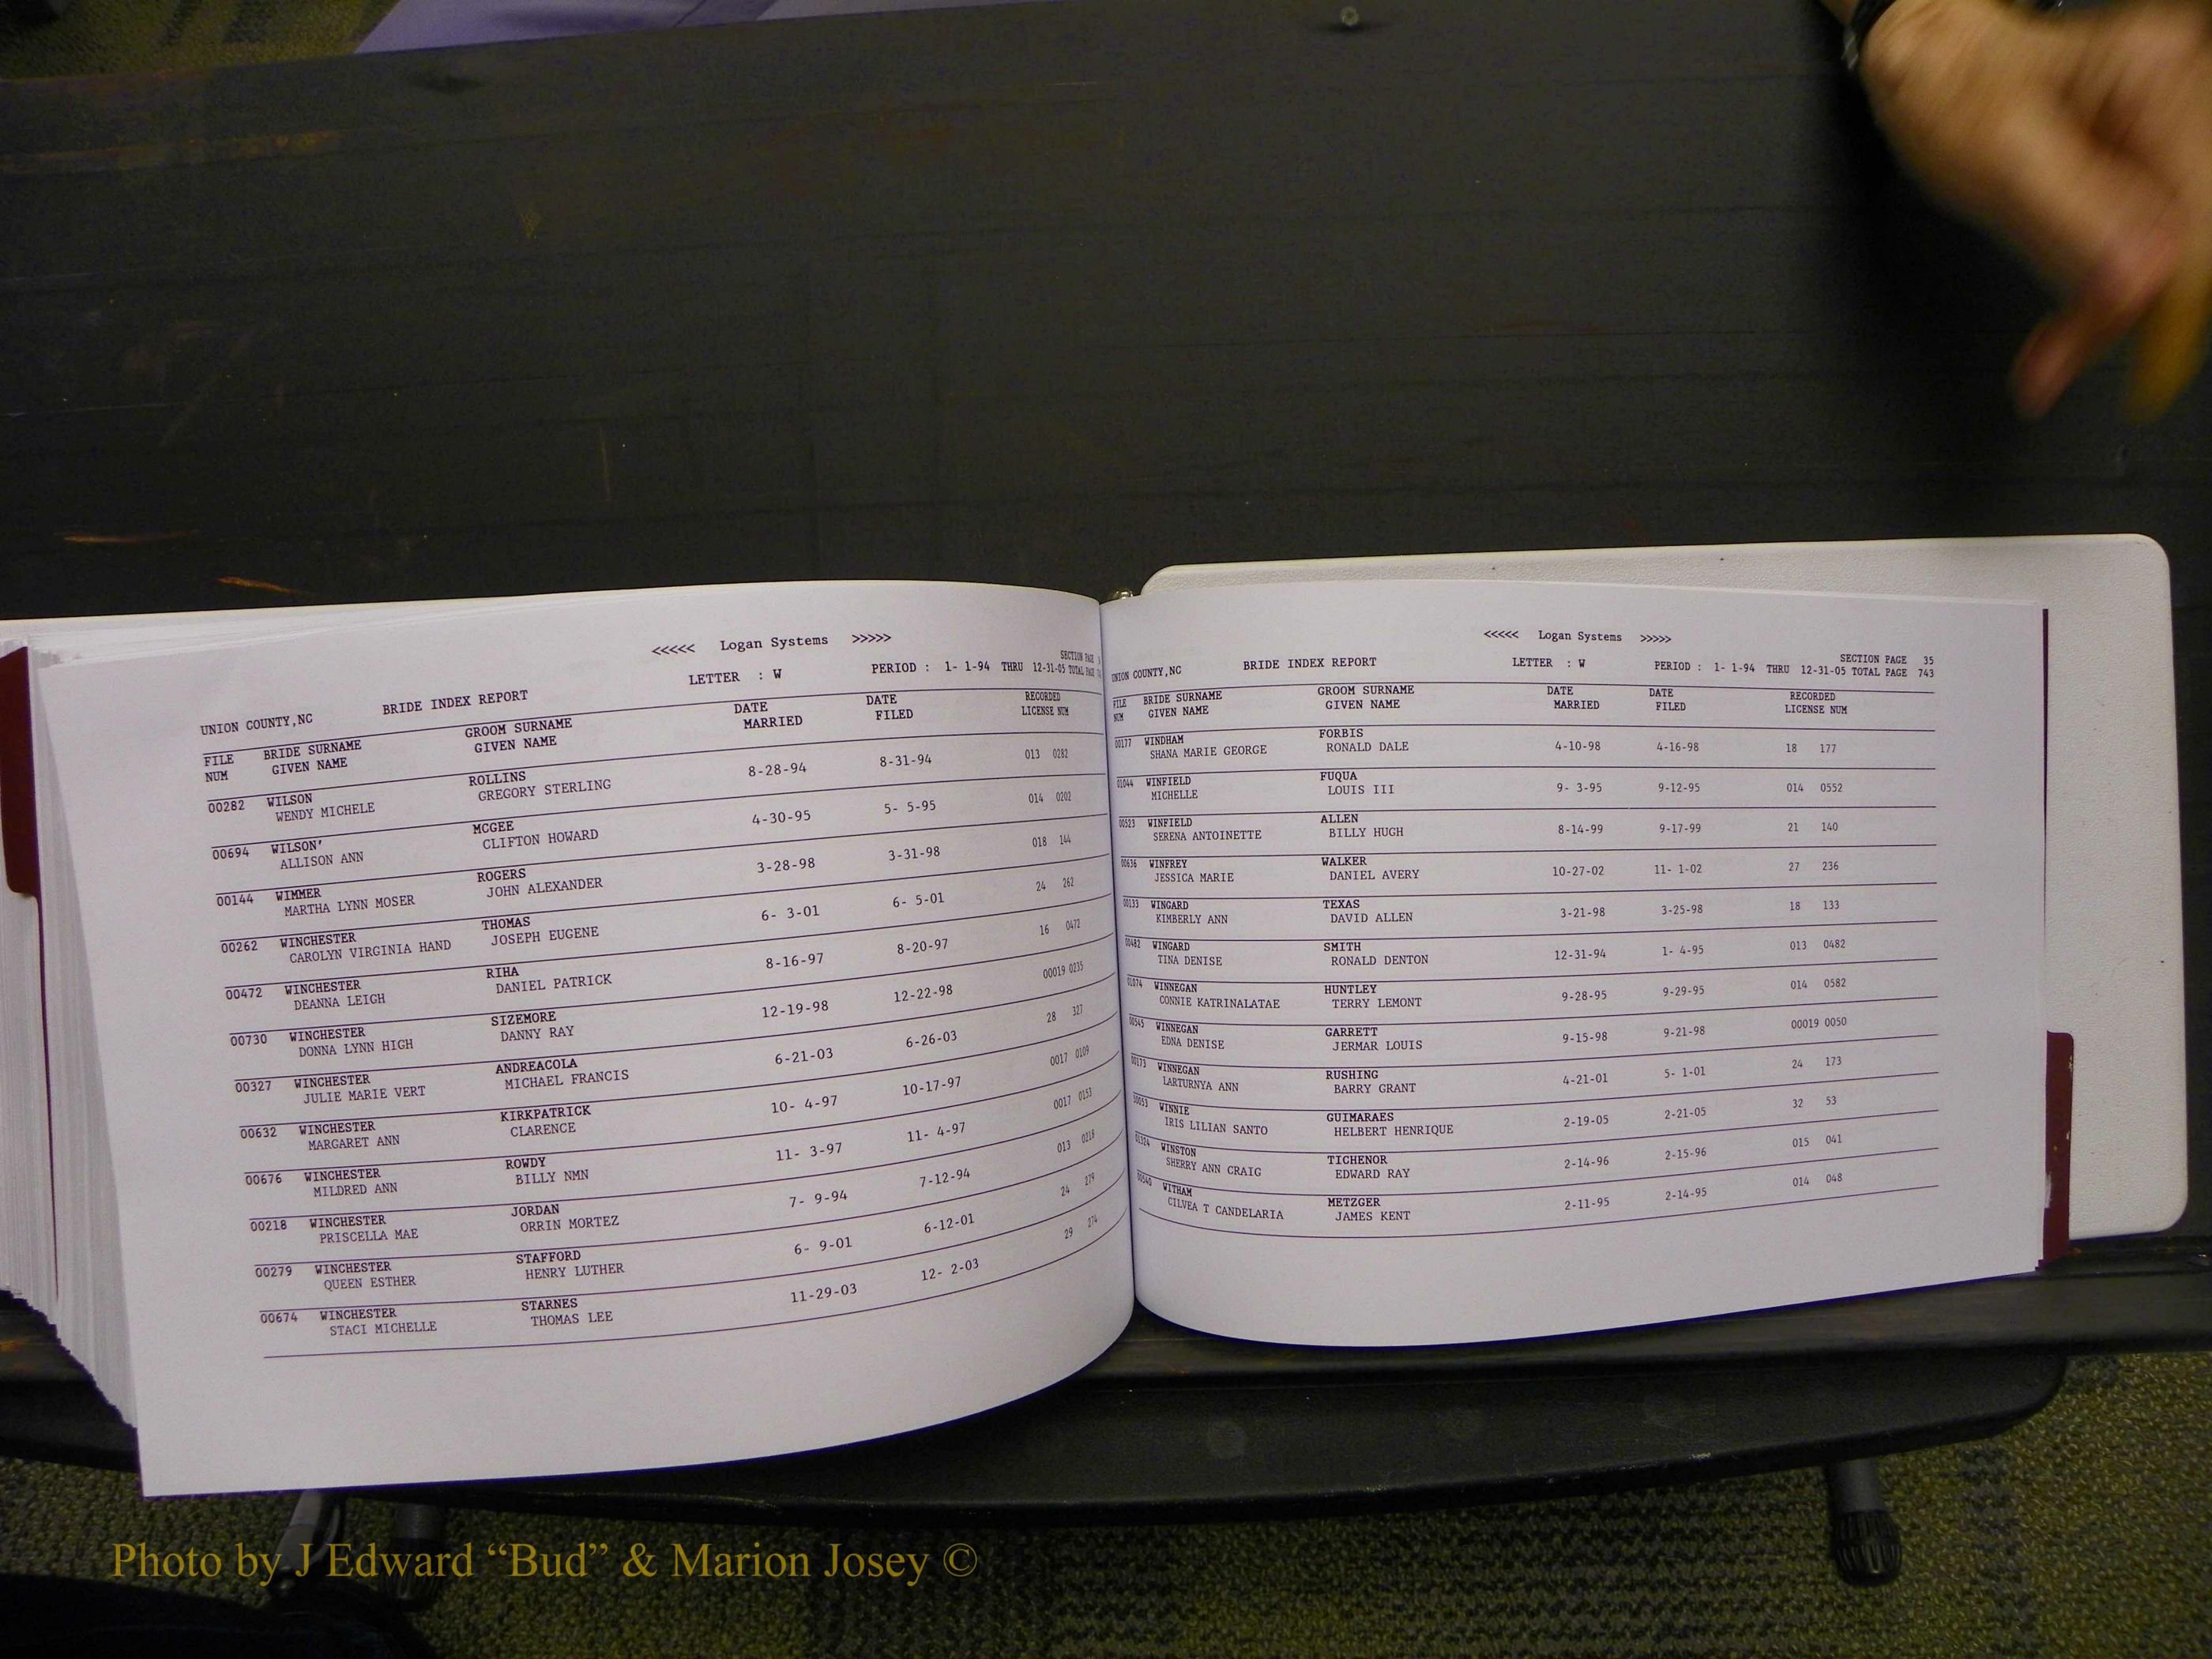 <<<<< Logan Systems >>>>>
UNION COUNTY,NC BRIDE INDEX REPORT LETTER : W PERIOD : 1- 1-94 THRU 12-31-05 TOTAL PAGE
SECTION PAGE
FILE BRIDE SURNAME GROOM SURNAME DATE DATE RECORDED
NUM GIVEN NAME GIVEN NAME MARRIED FILED LICENSE NUM
00282 WILSON ROLLINS 8-28-94 8-31-94 013 0282
WENDY MICHELE GREGORY STERLING
00694 WILSON' MCGEE 4-30-95 5- 5-95 014 0202
ALLISON ANN CLIFTON HOWARD
00144 WIMMER ROGERS 3-28-98 3-31-98 018 144
MARTHA LYNN MOSER JOHN ALEXANDER
00262 WINCHESTER THOMAS 6- 3-01 6- 5-01 24 262
CAROLYN VIRGINIA HAND JOSEPH EUGENE
00472 WINCHESTER RIHA 8-16-97 8-20-97 16 0472
DEANNA LEIGH DANIEL PATRICK
00730 WINCHESTER SIZEMORE 12-19-98 12-22-98 00019 0235
DONNA LYNN HIGH DANNY RAY
00327 WINCHESTER ANDREACOLA 6-21-03 6-26-03 28 327
JULIE MARIE VERT MICHAEL FRANCIS
00632 WINCHESTER KIRKPATRICK 10- 4-97 10-17-97 0017 0109
MARGARET ANN CLARENCE
00676 WINCHESTER ROWDY 11- 3-97 11- 4-97 0017 0153
MILDRED ANN BILLY NMN
00218 WINCHESTER JORDAN 7- 9-94 7-12-94 013 0218
PRISCELLA MAE ORRIN MORTEZ
00279 WINCHESTER STAFFORD 6- 9-01 6-12-01 24 279
QUEEN ESTHER HENRY LUTHER
00674 WINCHESTER STARNES 11-29-03 12- 2-03 29 274
STACI MICHELLE THOMAS LEE
<<<<< Logan Systems >>>>>
SECTION PAGE 35
UNION COUNTY,NC BRIDE INDEX REPORT LETTER : W PERIOD : 1- 1-94 THRU 12-31-05 TOTAL PAGE 743
FILE BRIDE SURNAME GROOM SURNAME DATE DATE RECORDED
NUM GIVEN NAME GIVEN NAME MARRIED FILED LICENSE NUM
00177 WINDHAM FORBIS 4-10-98 4-16-98 18 177
SHANA MARIE GEORGE RONALD DALE
01044 WINFIELD FUQUA 9- 3-95 9-12-95 014 0552
MICHELLE LOUIS III
00523 WINFIELD ALLEN 8-14-99 9-17-99 21 140
SERENA ANTOINETTE BILLY HUGH
00636 WINFREY WALKER 10-27-02 11- 1-02 27 236
JESSICA MARIE DANIEL AVERY
00133 WINGARD TEXAS 3-21-98 3-25-98 18 133
KIMBERLY ANN DAVID ALLEN
00482 WINGARD SMITH 12-31-94 1- 4-95 013 0482
TINA DENISE RONALD DENTON
01074 WINNEGAN HUNTLEY 9-28-95 9-29-95 014 0582
CONNIE KATRINALATAE TERRY LEMONT
00545 WINNEGAN GARRETT 9-15-98 9-21-98 00019 0050
EDNA DENISE JERMAR LOUIS
00173 WINNEGAN RUSHING 4-21-01 5- 1-01 24 173
LARTURNYA ANN BARRY GRANT
00053 WINNIE GUIMARAES 2-19-05 2-21-05 32 53
IRIS LILIAN SANTO HELBERT HENRIQUE
01324 WINSTON TICHENOR 2-14-96 2-15-96 015 041
SHERRY ANN CRAIG EDWARD RAY
00540 WITHAM METZGER 2-11-95 2-14-95 014 048
CILVEA T CANDELARIA JAMES KENT
Photo by J Edward “Bud” & Marion Josey ©